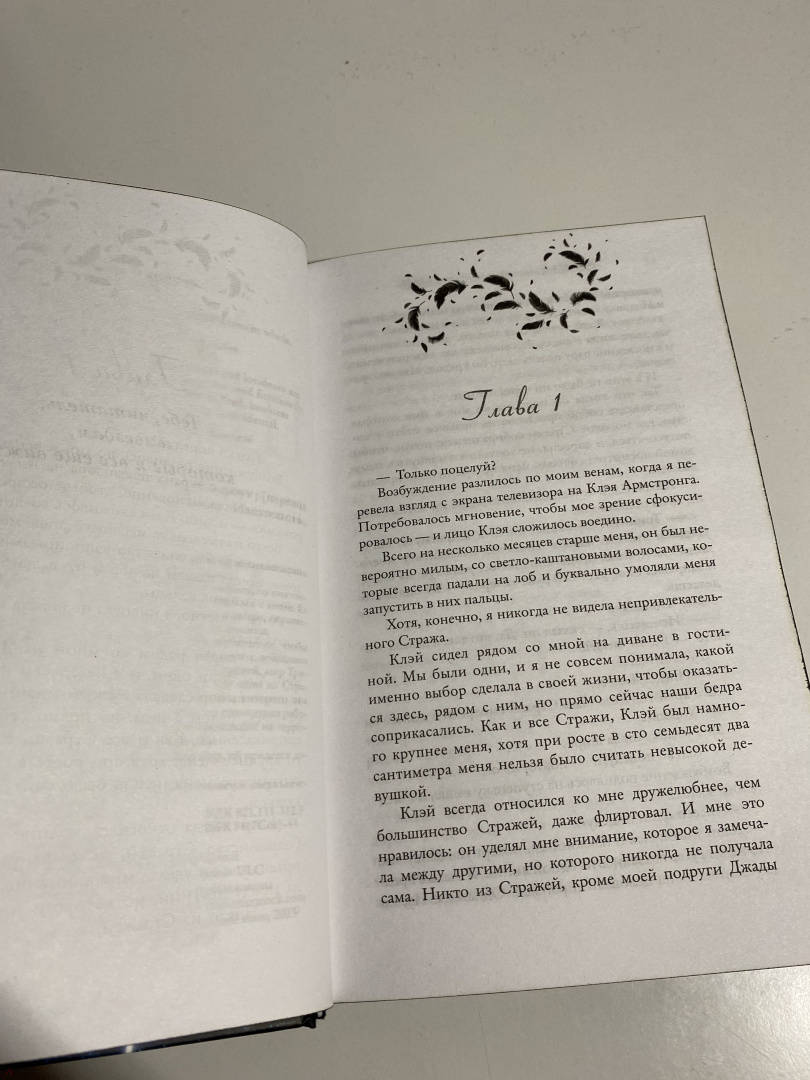 Глава 1
— Только поцелуй?
Возбуждение разлилось по моим венам, когда я пе-
ревела взгляд с экрана телевизора на Клэя Армстронга.
Потребовалось мгновение, чтобы мое зрение сфокуси-
ровалось — и лицо Клэя сложилось воедино.
Всего на несколько месяцев старше меня, он был не-
вероятно милым, со светло-каштановыми волосами, ко-
торые всегда падали на лоб и буквально умоляли меня
запустить в них пальцы.
Хотя, конечно, я никогда не видела непривлекатель-
ного Стража.
Клэй сидел рядом со мной на диване в гости-
ной. Мы были одни, и я не совсем понимала, какой
именно выбор сделала в своей жизни, чтобы оказать-
ся здесь, рядом с ним, но прямо сейчас наши бедра
соприкасались. Как и все Стражи, Клэй был намно-
го крупнее меня, хотя при росте в сто семьдесят два
сантиметра меня нельзя было считать невысокой де-
вушкой.
Клэй всегда относился ко мне дружелюбнее, чем
большинство Стражей, даже флиртовал. И мне это
нравилось: он уделял мне внимание, которое я замеча-
ла между другими, но которого никогда не получала
сама. Никто из Стражей, кроме моей подруги Джады